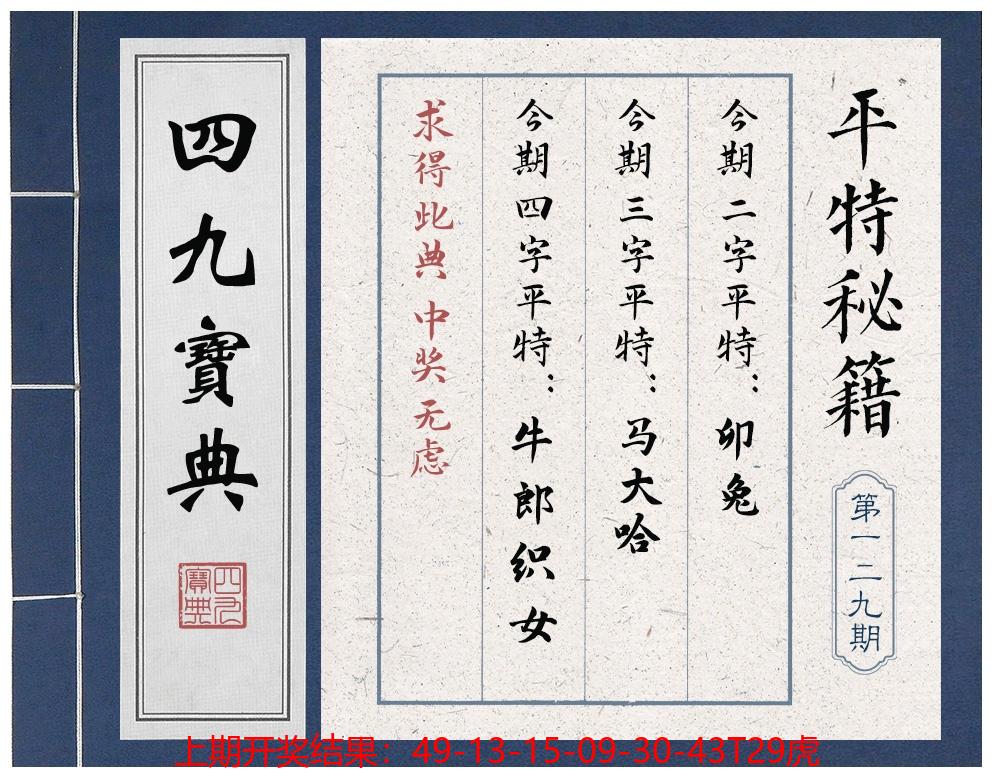 平特秘籍
第一二九期
今期二字平特：卯兔
今期三字平特：马大哈
今期四字平特：牛郎织女
求得此典 中奖无虑
四九寶典
四九寶典
上期开奖结果：49-13-15-09-30-43T29虎